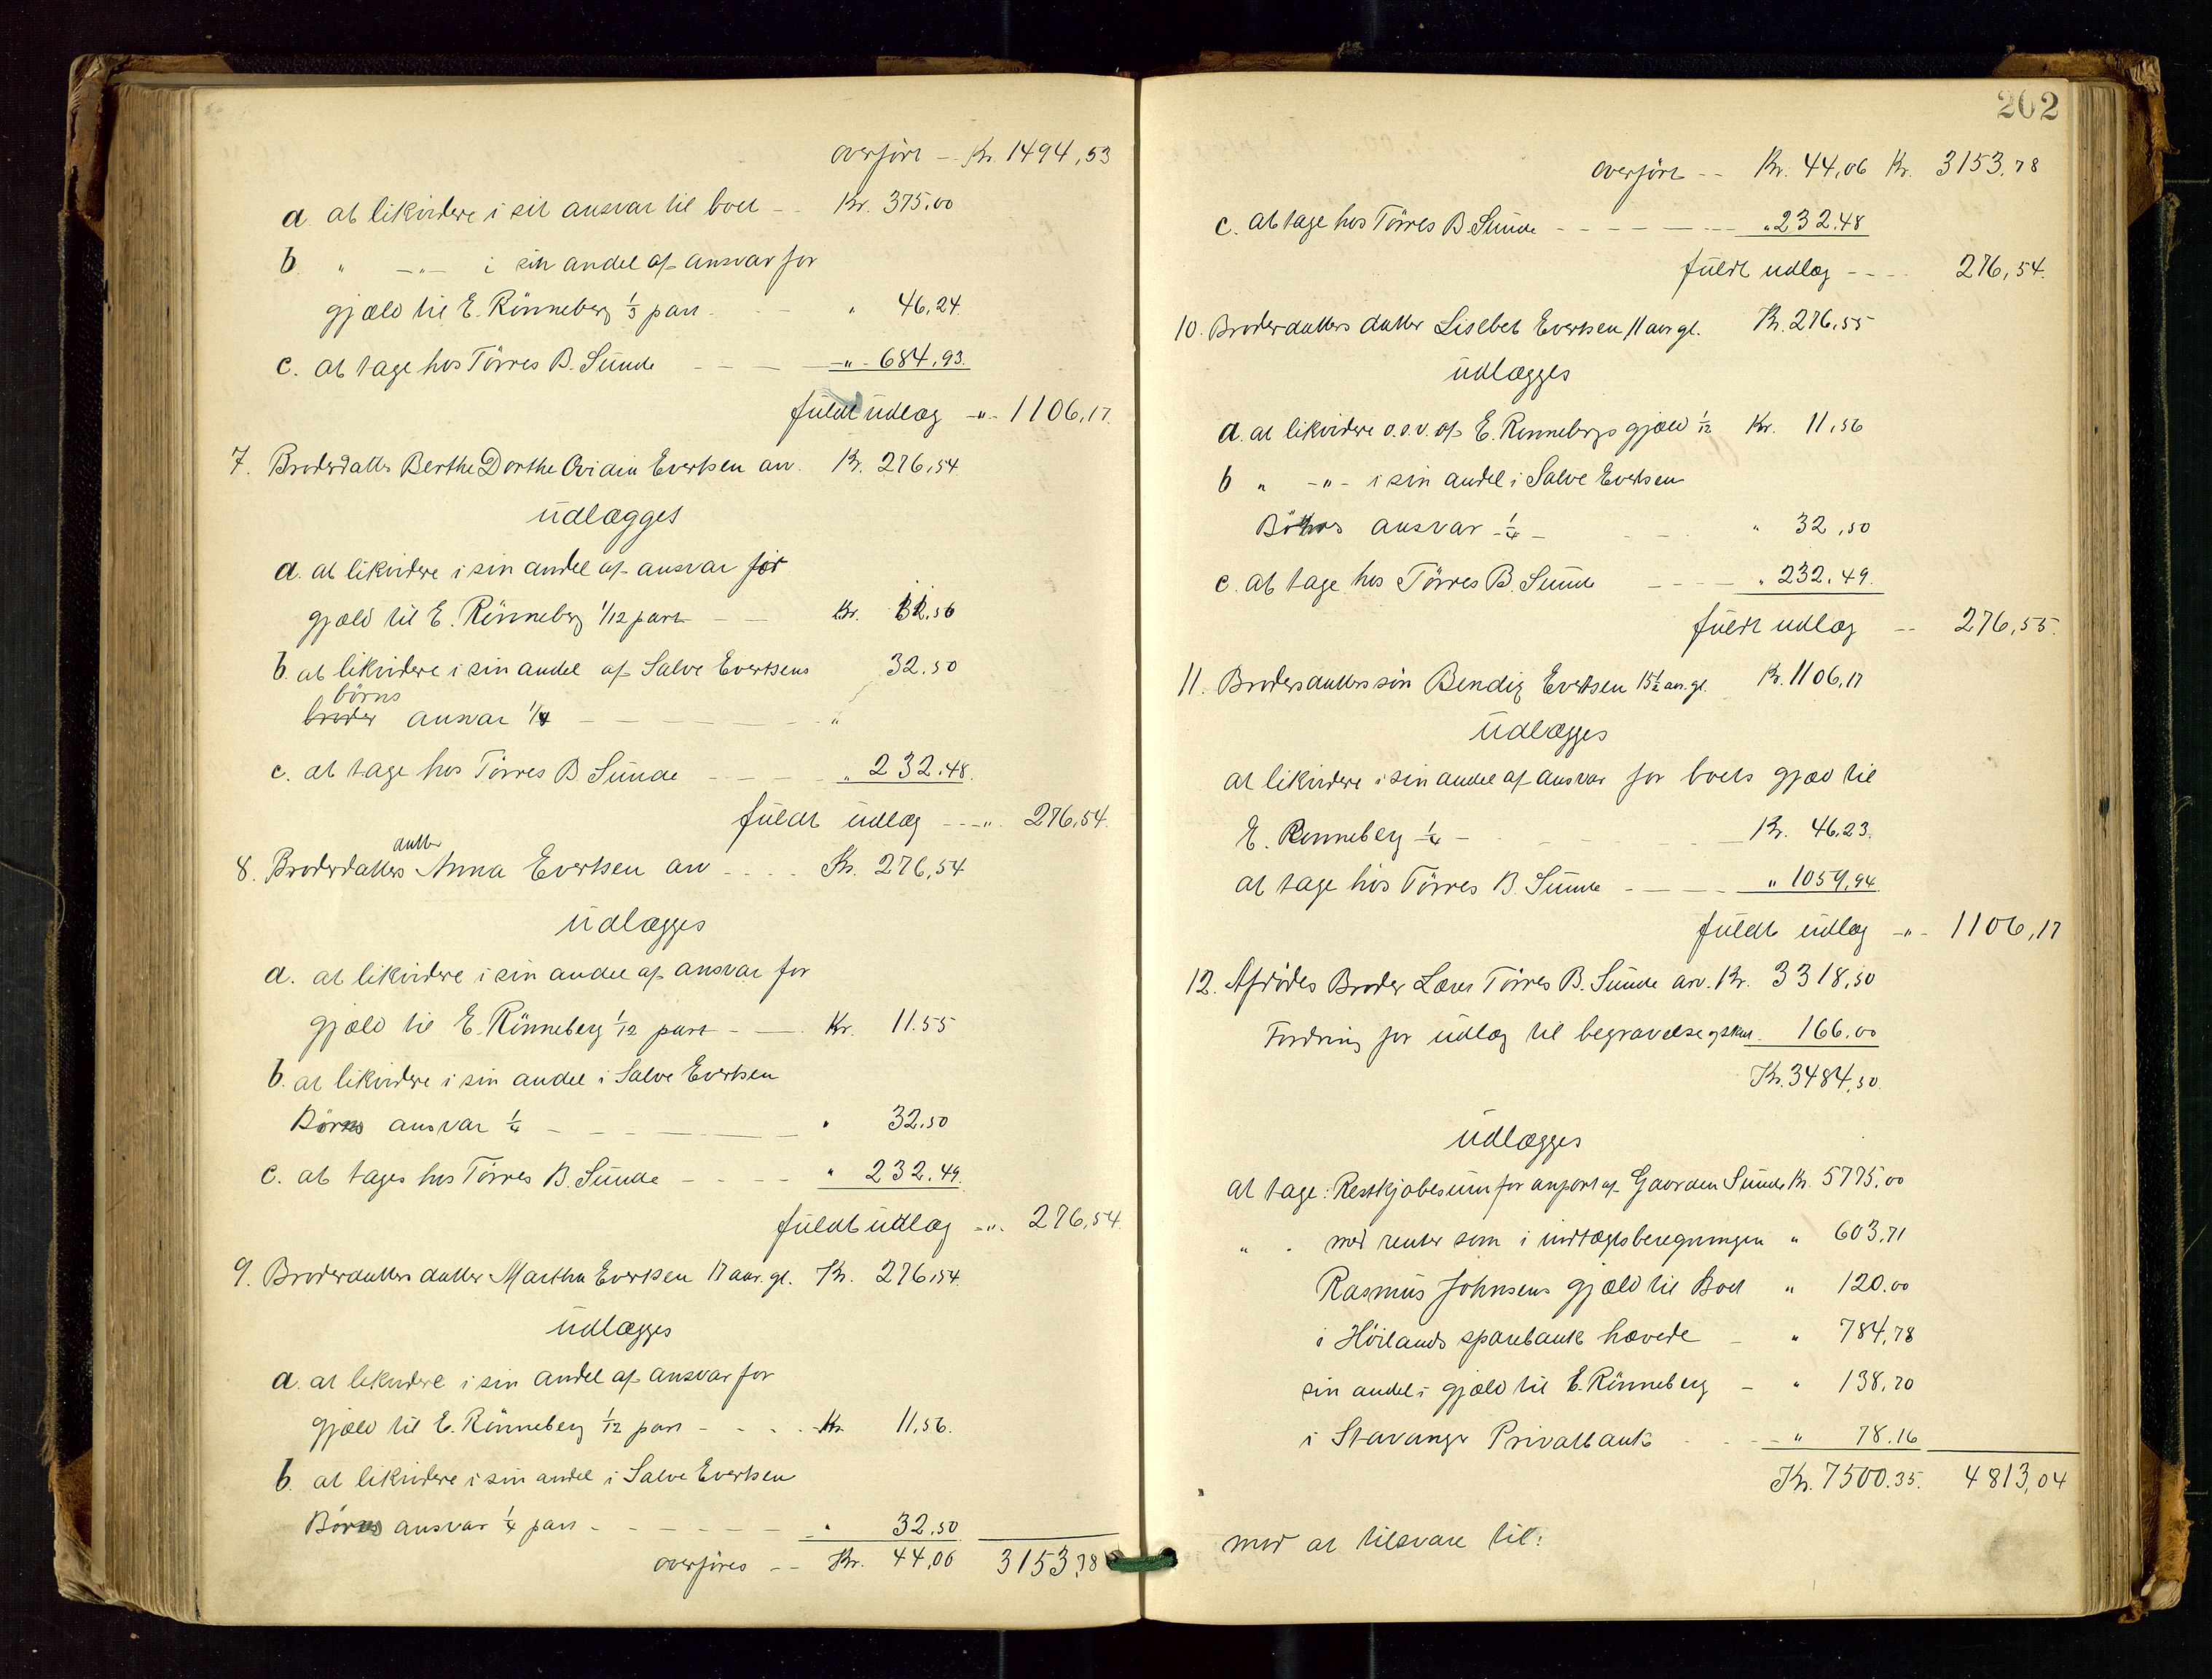 overført – Kr. 1494,53
a. at likvidere i sit ansvar til boet – – Kr. 375,00
b. " –"– i sin andel af ansvar for
gjæld til E. Rönneberg 1/3 part – – " 46,24
c. at tage hos Törres B. Sunde – – – –"– 684,93.
fuldt udlæg –"– 1106,17.
7. Broderdatter Berthe Dorthe Evertsen arv. Kr. 276,54
udlægges
a. at likvidere i sin andel af ansvar for
gjæld til E. Rönneberg 1/12 part – – Kr. 11,56
b. at likvidere i sin andel af Salve Evertsens 32,50
børns
broder ansvar 1/4 – – – – – "
c. at tage hos Törres B Sunde – – – " 232,48.
fuldt udlæg – – –". 276,54.
datter
8. Broderdatters Anna Evertsen arv – . . . Kr. 276,54
udlægges
a. at likvidere i sin andel af ansvar for
gjæld til E. Rönneberg 1/12 part – –. Kr. 11.55
b. at likvidere i sin andel i Salve Evertsen
Børns ansvar 1/4 – – – – – " 32,50
c. at tages hos Törres B. Sunde – – – – " 232.49.
fuldt udlæg –". 276,54.
9. Broderdatters datter Martha Evertsen 17 aar. gl. Kr. 276,54.
udlægges
a. at likvidere i sin andel af ansvar for
gjæld til E. Rönneberg 1/12 part – . . . Kr 11,56.
b. at likvidere i sin andel i Salve Evertsen
Børns ansvar 1/4 part – – – – – " 32,50
overføres – – Kr. 44,06 3153,78
202
overført – – Kr. 44,06 Kr. 3153,78
c. at tage hos Törres B. Sunde – – – – – – " 232.48
fuldt udlæg – – – – 276,54.
10. Broderdatters datter Lisebet Evertsen 11 aar gl. Kr. 276,55
udlægges
a. at likvidere o.s.v. af E. Rönnebergs gjæld 1/12 Kr. 11,56
b " –"– i sin andel i Salve Evertsen
Børns ansvar 1/4 – – – " 32,50
c. at tage hos Törres B. Sunde – – – – " 232.49.
fuldt udlæg – – 276,55.
11. Brodersdatters søn Bendix Evertsen 15 1/2 aar. gl. Kr. 1106,17
udlægges
at likvidere i sin andel af ansvar for boets gjæld til
E. Rönneberg 1/4 – – – – – – Kr. 46,23.
at tage hos Törres B. Sunde – – – – " 1059,94.
fuldt udlæg –"– 1106,17
12. Afdødes Broder Törres B. Sunde arv. Kr. 3318,50
Fordring for udlæg til begravelse 166.00
Kr. 3484,50.
udlægges
at tage: Restkjøbesum for anpart af Gaarden Sunde Kr. 5775,00
" . med renter som i indtægtsberegningen " 603,71
Rasmus Johnsens gjæld til Boet " 120.00
i Höilands sparebank hævede – " 784,78
sin andel i gjæld til E. Rönneberg – " 138,70
i Stavanger Privatbank – – – " 78.16
Kr. 7500.35. 4813,04
mod at tilsvare til: